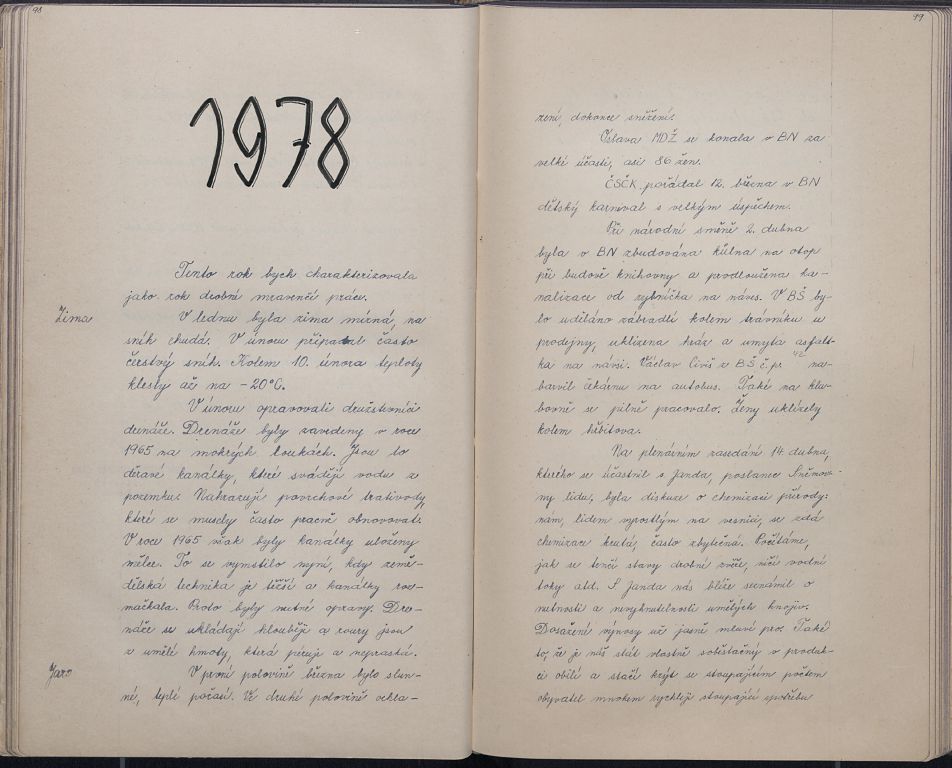 98
1978
Tento rok bych charakterizovala
jako rok drobné mravenčí práce.
Zima
V lednu byla zima mírná, na
sníh chudá. V únoru připadal často
čerstvý sníh. Kolem 10. února teploty
klesly až na -20°C.
V únoru opravovali družstevníci
drenáže. Drenáže byly zavedeny v roce
1965 na mokrých loukách. Jsou to
děravé kanálky, které svádějí vodu z
pozemku. Nahrazují povrchové trativody,
které se musely často pracně obnovovat.
V roce 1965 však byly kanálky uloženy
mělce. To se vymstilo nyní, kdy země-
dělská technika je těžší a kanálky roz-
mačkala. Proto byly nutné opravy. Dre-
náže se ukládají hlouběji a roury jsou
z umělé hmoty, která péruje a nepraská.
Jaro
V první polovině března bylo slun-
né, teplé počasí. Ve druhé polovině ochla-
99
zení, dokonce sněžení.
Oslava MDŽ se konala v BN za
velké účasti, asi 86 žen.
ČSČK pořádal 12. března v BN
dětský karneval s velkým úspěchem.
Při národní směně 2. dubna
byla v BN zbudována kůlna na otop
při budově knihovny a prodloužena ka-
nalizace od rybníčka na náves. V BŠ by-
lo uděláno zábradlí kolem trávníku u
prodejny, uklizena hráz a umyta asfalt-
ka na návsi. Václav Civiš z BŠ č.p. 42 na-
barvil čekárnu na autobus. Také na klu-
bovně se pilně pracovalo. Ženy uklízely
kolem hřbitova.
Na plenárním zasedání 14. dubna,
kterého se účastnil s. Janda, poslanec Sněmov-
ny lidu, byla diskuze o chemizaci přírody:
nám, lidem vyrostlým na vesnici, se zdá
chemizace krutá, často zbytečná. Počítáme,
jak se tenčí stavy drobné zvěře, ničí vodní
toky atd. S. Janda nás blíže seznámil o
nutnosti a nevyhnutelnosti umělých hnojiv.
Dosažené výnosy už jasně mluví pro. Také
to, že je náš stát vlastně soběstačný v produk-
ci obilí a stačí krýt se stoupajícím počtem
obyvatel mnohem rychleji stoupající spotřebu